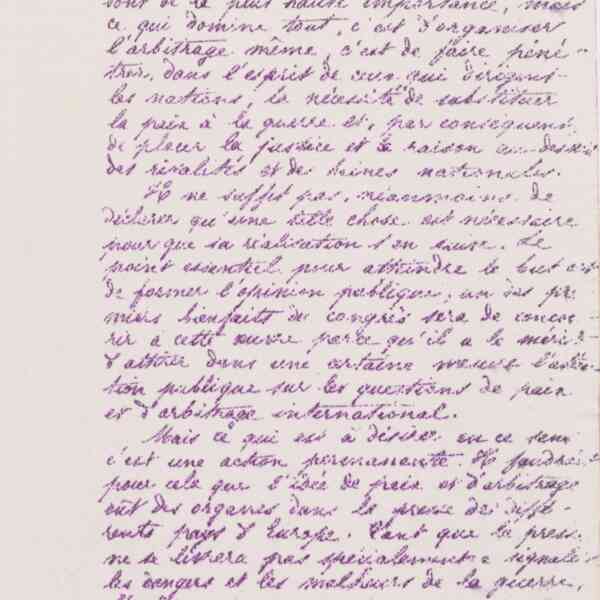 sont de la plus haute importance, mais
ce qui domine tout, c'est d'organiser
l'arbitrage même, c'est de faire péné-
trer, dans l'esprit de ceux qui dirigent
les nations, la nécessité de substituer
la paix à la guerre et, par conséquent,
de placer la justice et la raison au-dessus
des rivalités et des haines nationales.
Il ne suffit pas, néanmoins de
déclarer qu'une telle chose est nécessaire
pour que sa réalisation s'en suive. Le
point essentiel pour atteindre le but est
de former l'opinion publique; un des pre-
miers bienfaits du congrès sera de concou-
rir à cette œuvre parce qu'il a le mérite
d'attirer dans une certaine mesure l'atten-
tion publique sur les questions de paix
et d'arbitrage international.
Mais ce qui est à désirer en ce sens
c'est une action permanente. Il faudrait
pour cela que l'idée de paix et d'arbitrage
eût des organes dans la presse des diffé-
rents pays d'Europe. Tant que la presse
ne se livrera pas spécialement à signaler
les dangers et les malheurs de la guerre,